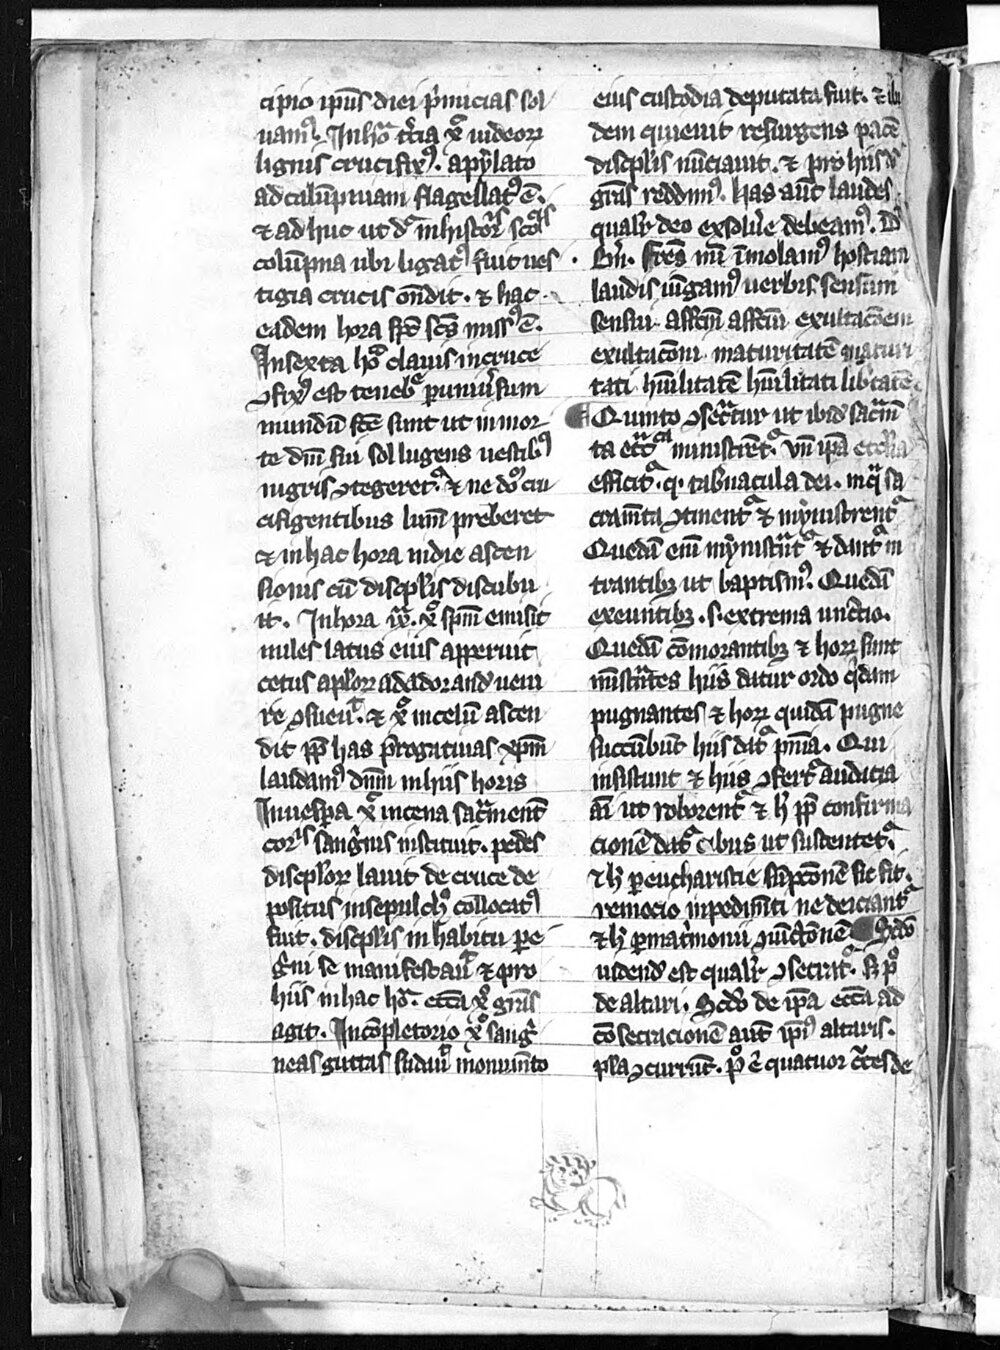 cipio ipīus diei p̓micias sol
uamꝰ. In hōa t̓cia xͦ uideorꝝ
lignis crucifixꝰ. a pylato
ad colūpnam flagellatꝰ ē.
⁊ ad huc ut dr̄ in historͥs scolͣs
colūpna ubi ligatꝰ fuit ues
tigia cruoris ondit. ⁊ hac
eadem hora spc̄ scs̄ missꝰ ē.
In sexta hōa clauis in cruce
ꝯfixꝰ est tenebͤ p uniūsum
mundū fc̄e sunt ut in mor
te dm̄ sui sol lugens uestibꝰ
nigris ꝯtegeretͬ. ⁊ ne dōm cru
cifigentibus lum̄ preberet
⁊ in hac hora in die ascen
sionis cū discipl̓is discubu
it. In hora ix. xͦ sp̄m emisit
miles latus eius apperuit
cetus aplorꝝ ad adorand ueni
re ꝯsueuͭ. ⁊ xͦ in celū ascen
dit pp̄ has p̓rogatiuas xpm̄
laudamꝰ dnm̄ in hiis horis
In uesp̱a xͦ in cena sacͣment
corͥs sangͥnis instituit. pedes
discipl̓orꝝ lauit de cruce de
positus in sepulchͦ collocatꝰ
fuit. discipl̓is in habitu pe
gͥni se manifestauͭ ⁊ pro
hiis in hac hoͣ. ecc̄a xͦ grās
agit. In cōpletorio xͦ sangͥ
neas guttas sudauͭ monumto
eius custodia deputata fuit. ⁊ ibi
dem quieuit resurgens pacē
discipl̓is nūciauit. ⁊ pro hiis
grās reddimꝰ. has aūt laudes
qualr̓ deo exsolu̓e debeamꝰ. D͛
Br̄n. fr̄es mī īmolamꝰ hostiam
laudis iūgamꝰ uerbis sensum
sensui affc̄m affc̄ui exultacōem
exultacōni maturitatē maturi
tati hūilitatē hūilitati lib̓tatē.
Quinto ꝯsecͣtur ut ibid̓ sacͣm̄
ta ecc̄astͣ ministrētͬ. vn̄ ip̄a ecc̄a
efficitͬ. qͥ. tab̓nacula dei. in qͣ sa
cram̄ta ꝯtinentͬ ⁊ mynistrentͬ
Quedā em̄ mynistͣntͬ ⁊ dantͬ in
trantibꝫ ut baptismꝰ. Quedā
exeuntibꝫ .s. extrema unctio.
Quedā cōmorantibꝫ ⁊ horꝝ sunt
mīstͣntes hiis datur ordo qͥdam
pugnantes ⁊ horꝝ quidā pugne
succūbūt hiis datͬ pn̄ia. Qui
insistunt ⁊ hiis ꝯfertͬ audacia
aī ut roborentͬ ⁊ h̓ pp̄ confirma
cionē datͬ cibus ut sustentetͬ.
⁊ h̓ per eucharistie sūpcōnē sic fit.
remocio inpedim̄ti ne deiciantͬ
⁊ h̓ p matͥmonii ꝯiūctōnē Scd̄o
uidend̓ est qualr̓ ꝯsecratͬ. S; pͦ
de altari. Scd̓o de ip̄a ecc̄a ad
cōsecracionē aūt ip̄iꝰ altaris.
pl̓a ꝯcurrūt. pͦ ē quatuor cͬces de